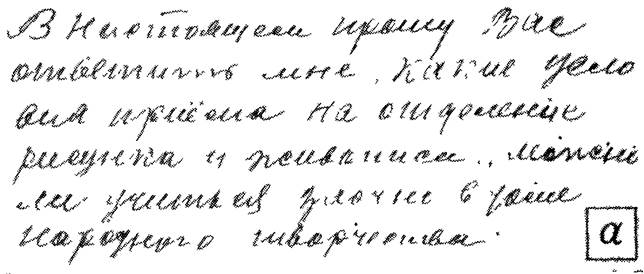 В Настоящем прошу Вас
ответить мне, какие усло
вия приёма на отделение
рисунка и живописи, можно
ли учиться заочно в доме
Народного творчества.
а